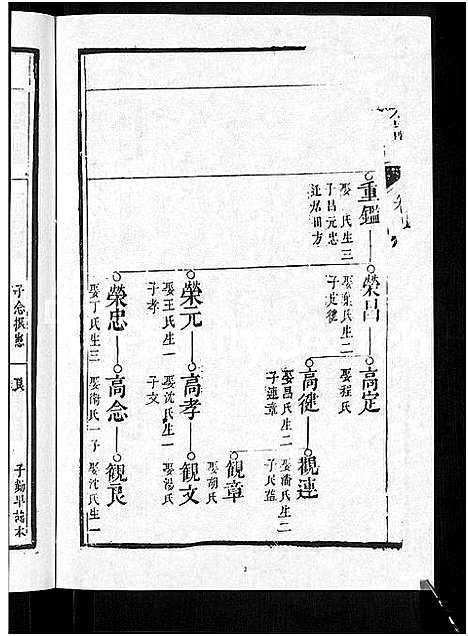 重鑑
娶 氏生三
子昌元忠
迁居田方
榮昌
氏生二
子定健
高定
娶程氏
高健
娶昌氏生二
子連章
觀連
娶潘氏生二
覌章
娶胡氏
榮元
娶王氏生一
子孝
高孝
娶沈氏生一
子文
覌文
娶湯氏
榮忠
娶丁氏生三
子念振憲
高念
娶衛氏一子
覌良
娶沈氏生一
子勤早